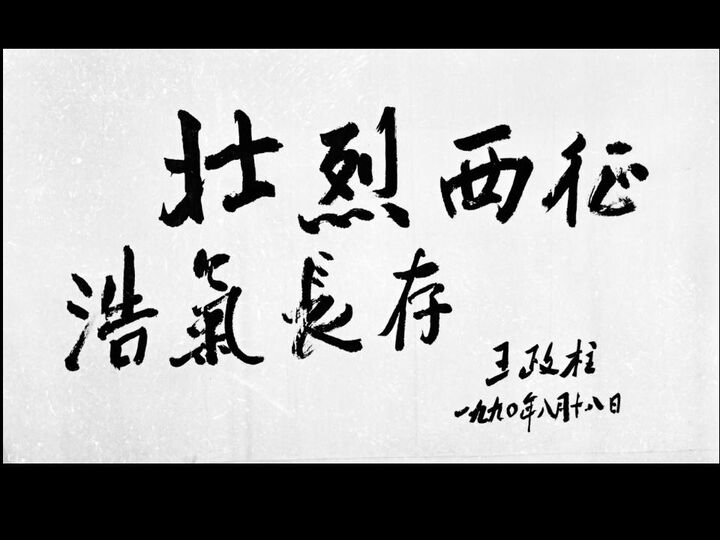 壮烈西征
浩氣長存
王政柱
一九九〇年八月十八日